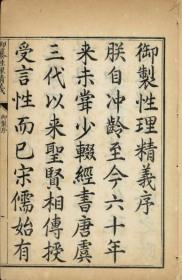 御製性理精義序
朕自冲齡至今六十年
來未嘗少輟經書唐虞
三代以來聖賢相傳授
受言性而已宋儒始有